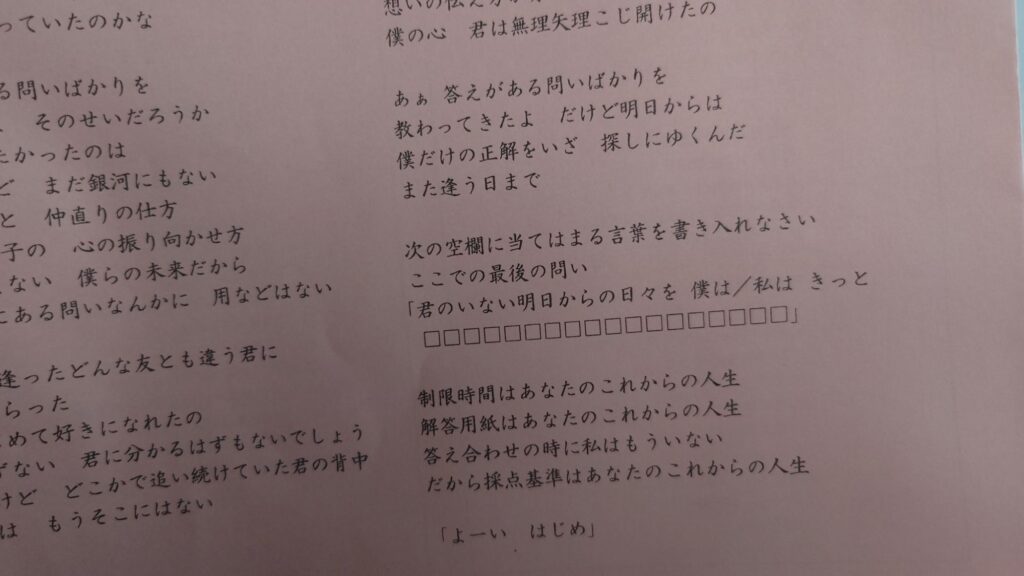 っていたのかな
る問いばかりを
そのせいだろうか
たかったのは
ど　まだ銀河にもない
と　仲直りの仕方
子の　心の振り向かせ方
ない　僕らの未来だから
にある問いなんかに　用などはない
逢ったどんな友とも違う君に
らった
めて好きになれたの
ない　君に分かるはずもないでしょう
けど　どこかで追い続けていた君の背中
は　もうそこにはない
僕の心　君は無理矢理こじ開けたの
あぁ 答えがある問いばかりを
教わってきたよ　だけど明日からは
僕だけの正解をいざ　探しにゆくんだ
また逢う日まで
次の空欄に当てはまる言葉を書き入れなさい
ここでの最後の問い
「君のいない明日からの日々を 僕は／私は きっと
□□□□□□□□□□□□□□□□□□」
制限時間はあなたのこれからの人生
解答用紙はあなたのこれからの人生
答え合わせの時に私はもういない
だから採点基準はあなたのこれからの人生
「よーい　はじめ」